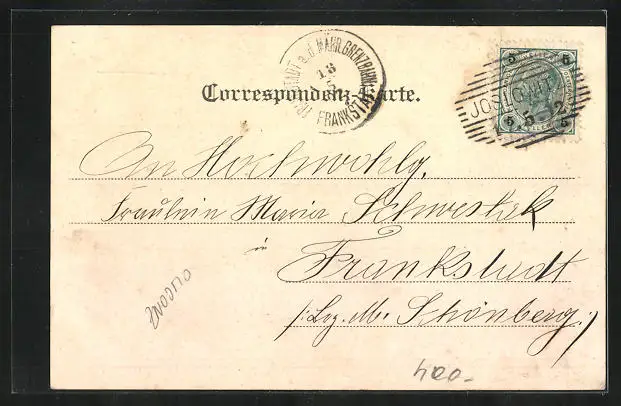 Correspondenz-Karte.
FRANKSTADT a. d. MÄHR. GRENZBAHN
18
FRANKSTA
5 5
JOSLOWITZ
5 5
An Hochwohlg.
Fräulein Maria Schwestek
in
Frankstadt
/: Bez. M. Schönberg :/
400-